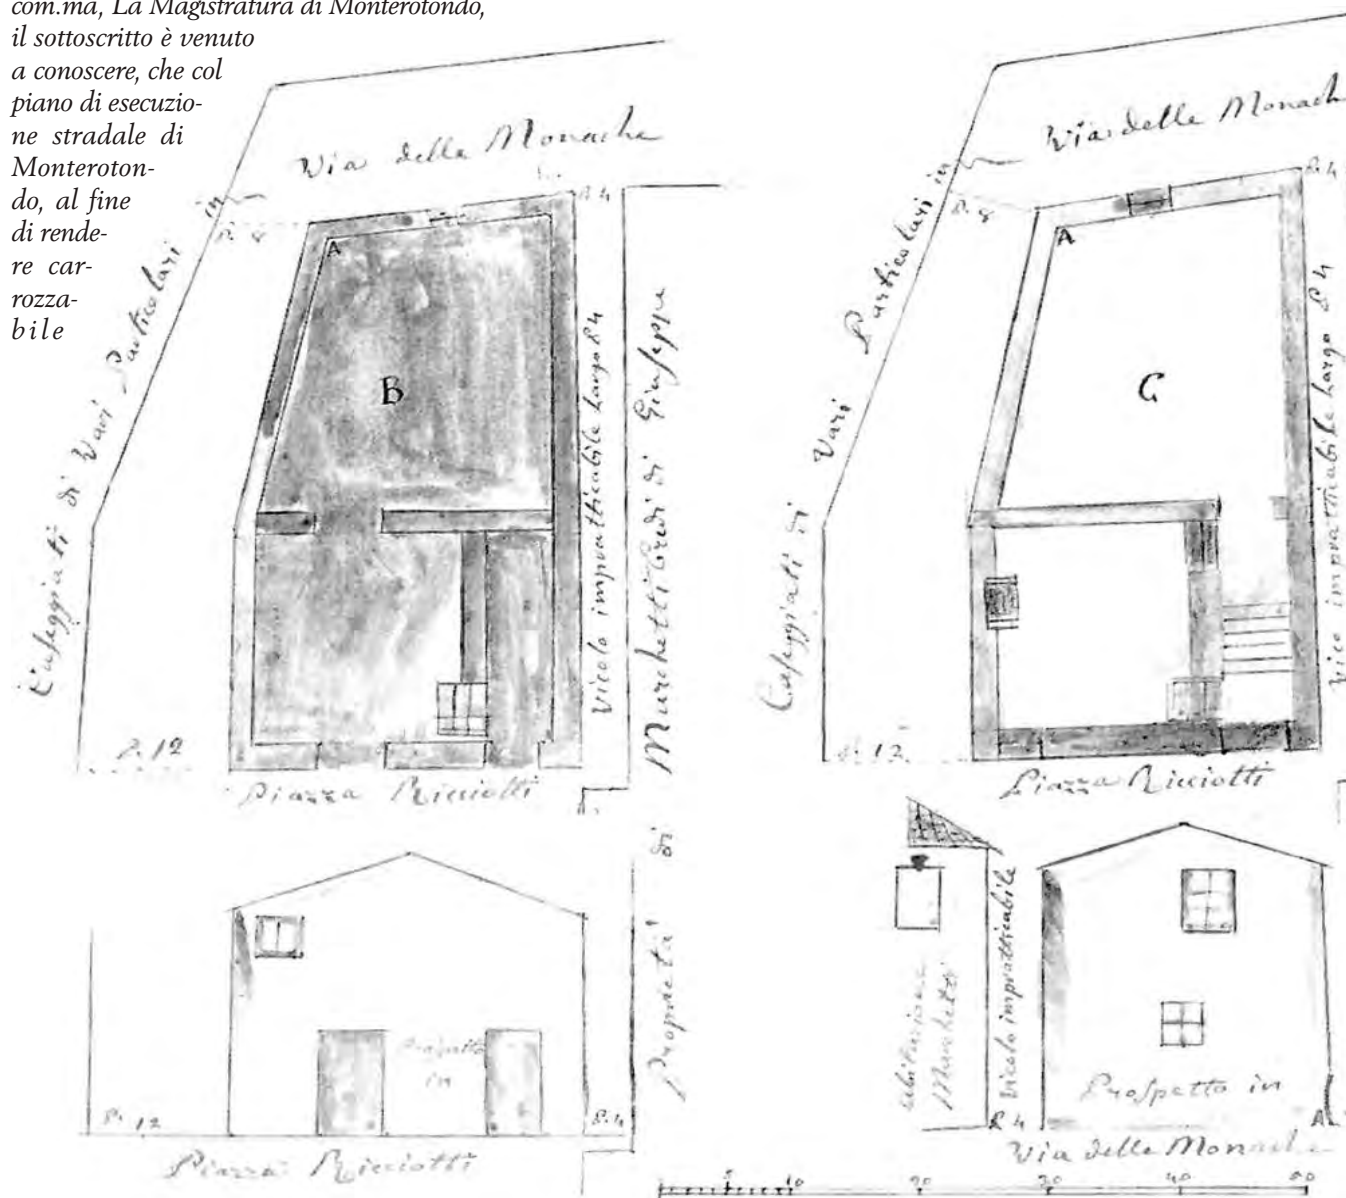 com.ma, La Magistratura di Monterotondo,
il sottoscritto è venuto
a conoscere, che col
piano di esecuzio-
ne stradale di
Monteroton-
do, al fine
di rende-
re car-
rozza-
bile
Via delle Monache
in
P. 8
P. 4
A
B
Caseggiati di Vari Particolari
Vicolo impratticabile Largo P. 4
Marchetti Eredi di Giuseppe
Proprietà di
P. 12
Piazza Ricciotti
Prospetto
in
P. 12
P. 4
Piazza Ricciotti
Via delle Monach
in
P. 8
P. 4
A
C
Caseggiati di Vari Particolari
Vico impratticabile Largo P. 4
P. 12
Piazza Ricciotti
Marchetti
Vicolo impratticabile
P. 4
Prospetto in
A
Via delle Monache
5 10 20 30 40 50